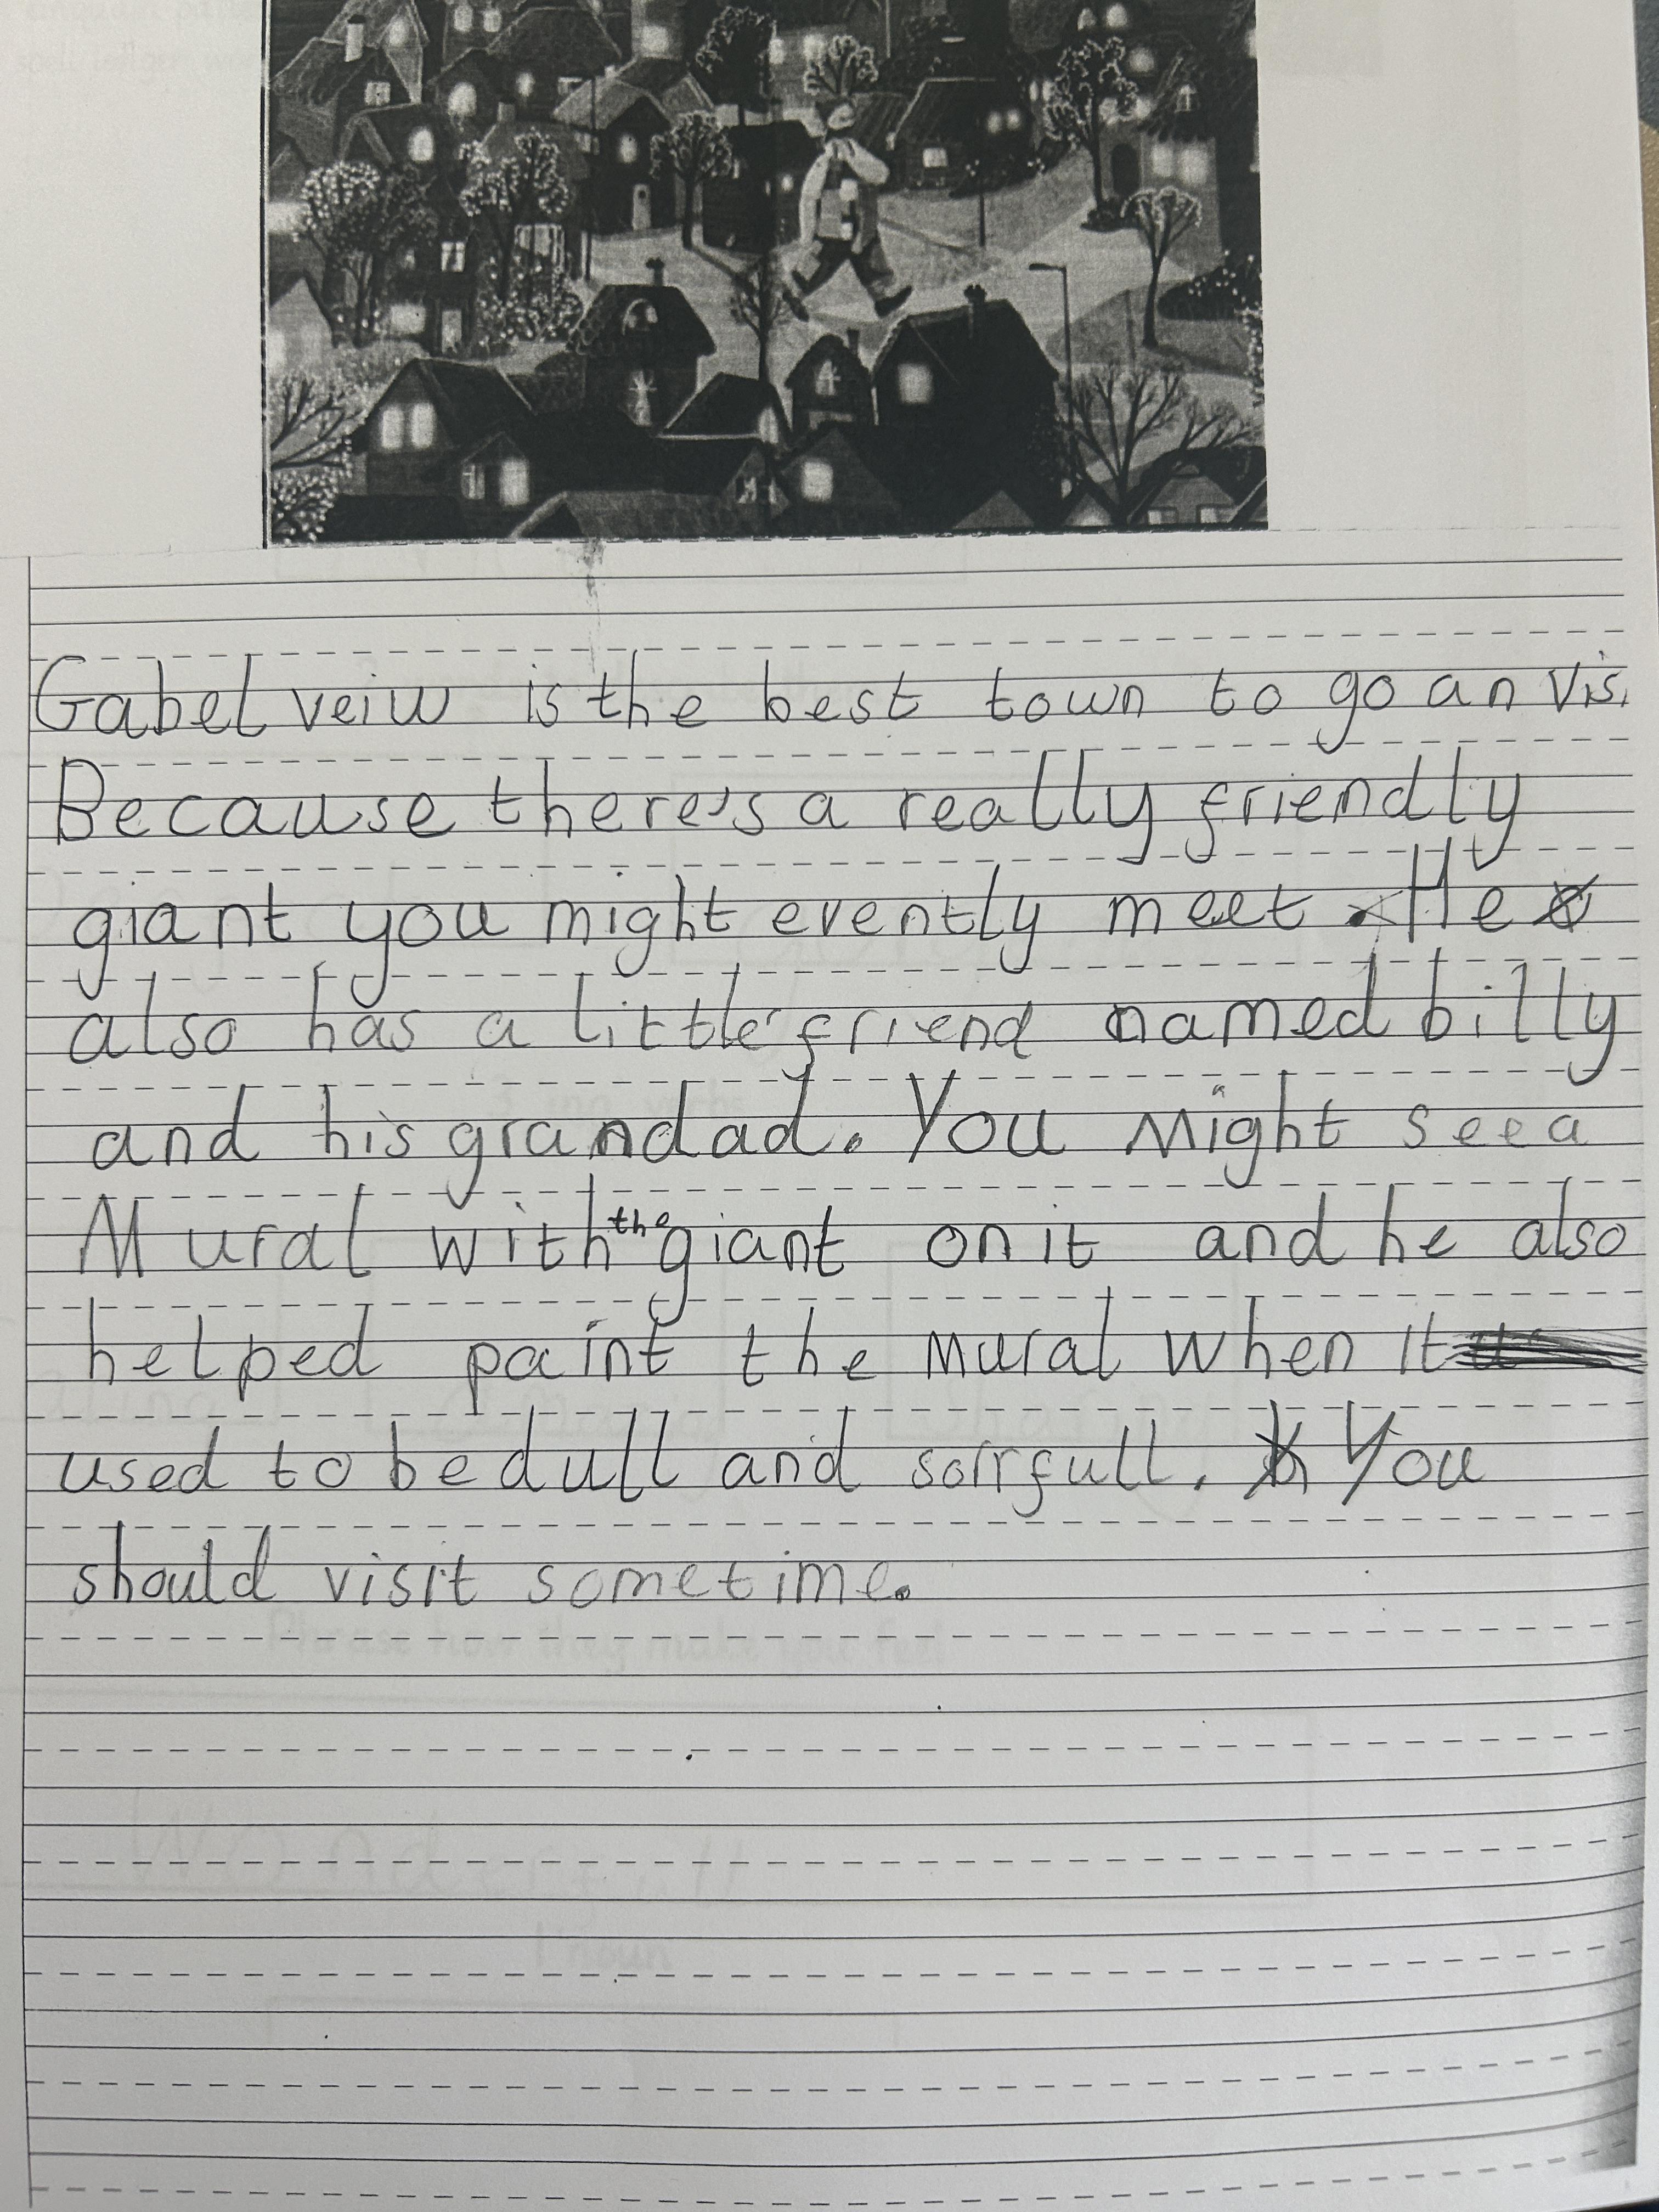 Gabel veiw is the best town to go an vis
Because there's a really friendly
giant you might evently meet. He
also has a little friend named billy
and his grandad. You Might see a
Mural with the giant on it and he also
helped paint the Mural when it
used to be dull and sorrfull. You
should visit sometime.